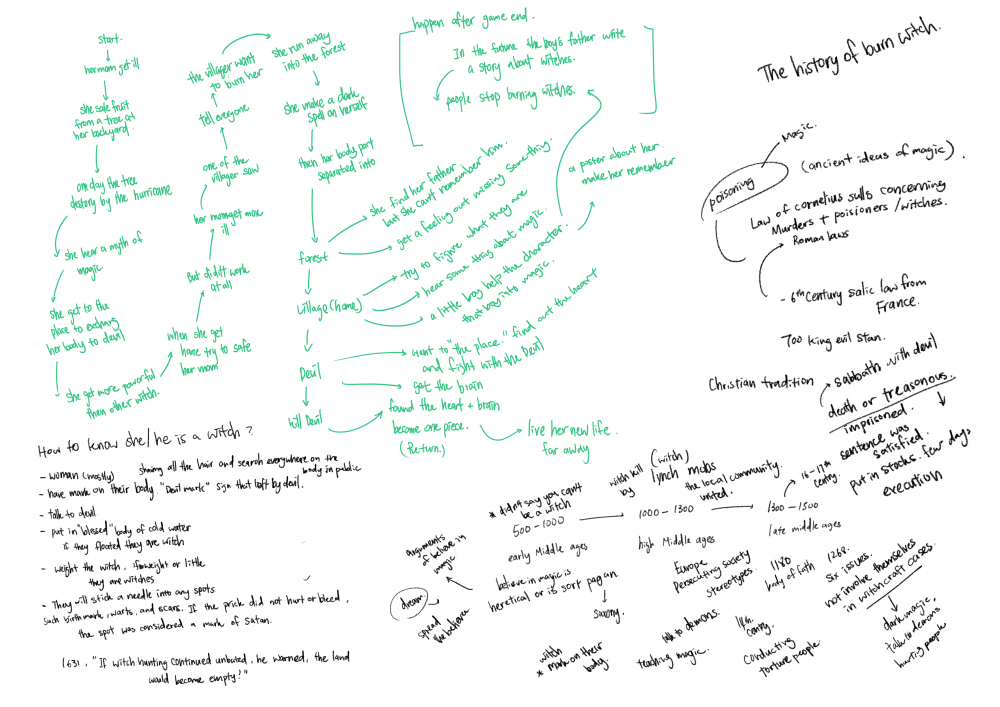 start.
her mom get ill
she sole fruit
from a tree at
her backyard.
one day the tree
destory by the hurricane
she hear a myth of
magic
she get to the
place to exchang
her body to devil
she get more powerful
than other witch.
when she get
hane try to safe
her mom
But didn't work
at all
her mom get more
ill
one of the
villager saw
tell everyone
the villager want
to burn her
she run away
into the forest
she make a dark
spell on herself
then her body part
separated into
forest
she find her father
but she can't remember him.
get a feeling out missing something.
village (home)
try to figure what they are
hear some thing about magic.
a little boy help the character.
that boy into magic.
Devil
want to "the place." find out the heart
and fight with the Devil
get the brain
kill Devil
found the heart + brain
become one piece.
(Return)
live her new life.
far away
happen after game end.
In the future the boy's father write
a story about witches.
people stop burning witches.
a poster about her
make her remember
The history of burn witch.
Magic.
poisoning
(ancient ideas of magic).
Law of cornelius sulls concerning
Murders + poisioners / witches.
Roman laws
- 6th Century salic law from
France.
700 king evil stan.
Christian tradition
sabbath with devil
death or treasonous.
imprisoned.
sentence was
satisfied.
put in stocks. few days
execution
16-17th
centry.
How to know she/he is a witch?
- woman (mostly)
shaving all the hair and search everywhere on the
body in public
- have mark on their body. "Devil mark" sign that left by devil.
- talk to devil
- put in "blessed" body of cold water
if they floated they are witch
- weight the witch, if overweight or little
they are witches
- They will stick a needle into any spots
such birthmark, warts, and scars. If the prick did not hurt or bleed,
the spot was considered a mark of Satan.
1631, "If witch hunting continued unbuted, he warned, the land
would become empty!"
* didn't say you can't
be a witch
500-1000
early Middle ages
believe in magic is
heretical or is sort pagan
saxony.
arguments
of believe in
magic
dream
spread
the believe
witch kill (witch)
by lynch mobs
the local community.
united.
1000-1300
high Middle ages
Europe
persecuting society
stereotypes.
1300-1500
late middle ages
1180
body of faith
1268.
six issues.
not involve themselves
in witchcraft cases.
dark magic,
talk to demons
hurting people
witch
* mark on their
body.
talk to demons.
teaching magic.
centry.
conducting
torture people